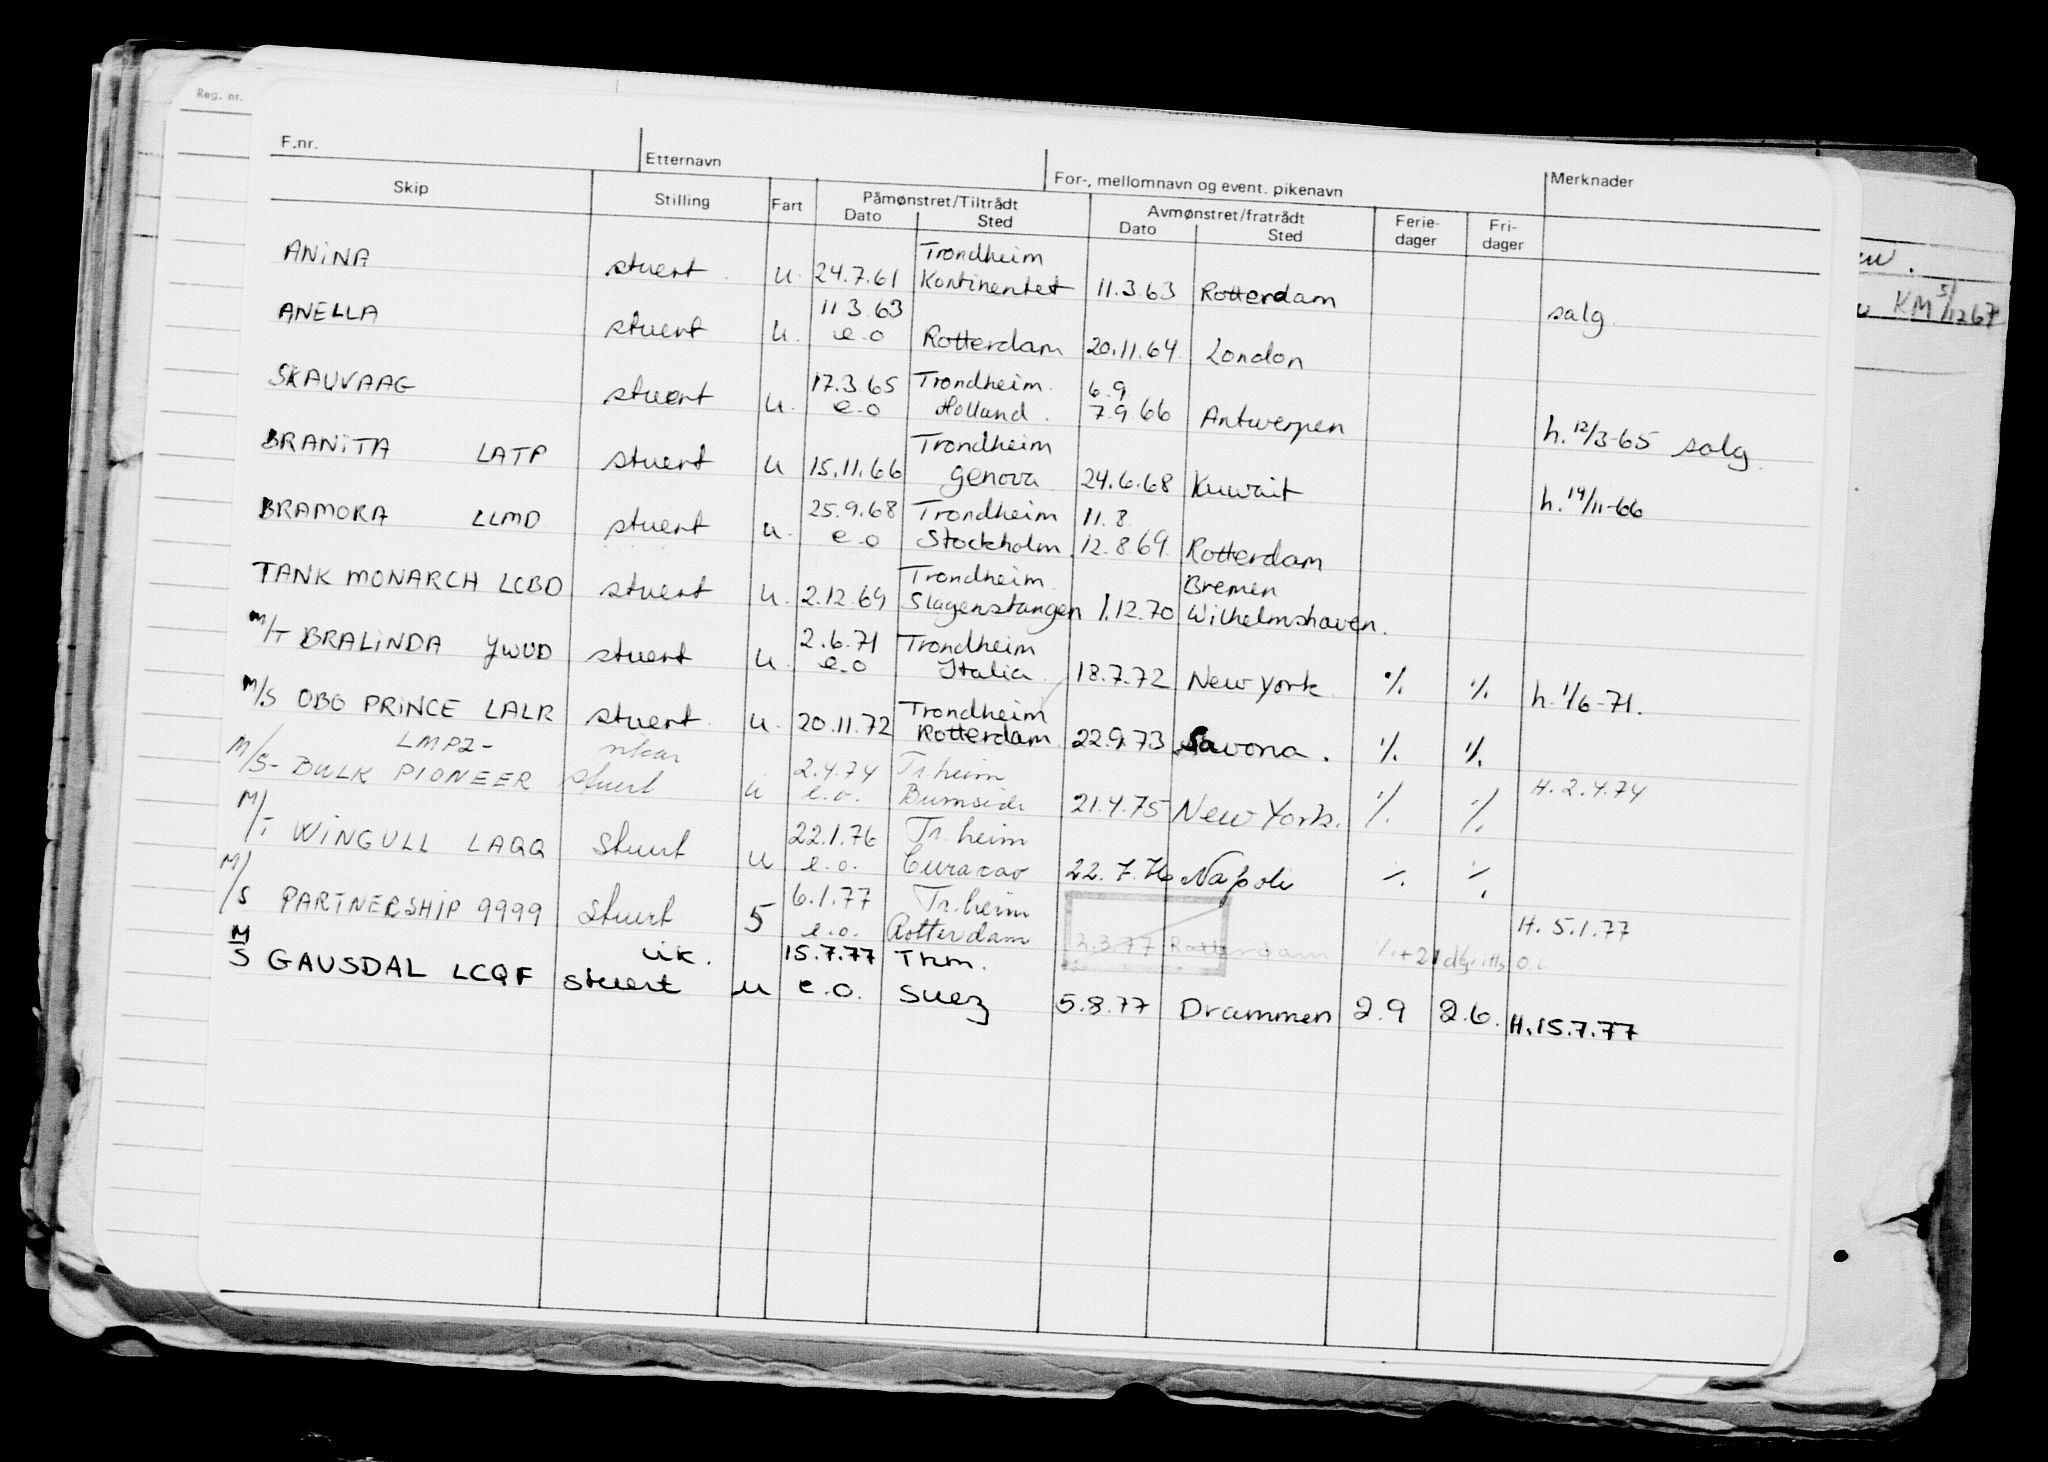 Reg. nr.
F.nr. Etternavn For-, mellomnavn og event. pikenavn Merknader
Skip Stilling Fart Påmønstret/Tiltrådt Avmønstret/fratrådt Ferie- Fri-
Dato Sted Dato Sted dager dager
Trondheim
ANINA stuert u. 24.7.61 Kontinentet 11.3.63 Rotterdam salg.
11.3.63
ANELLA stuert u. e.o Rotterdam 20.11.64. London
17.3.65 Trondheim. 6.9
SKAUVAAG stuert u. e.o Holland. 7.9.66 Antwerpen h. 12/3-65 salg.
Trondheim
BRANITA LATP stuert u 15.11.66 Genova 24.6.68 Kuwait h. 14/11-66
25.9.68 Trondheim 11.8.
BRAMORA LLMD stuert u. e.o Stockholm. 12.8.69. Rotterdam
Trondheim. Bremen
TANK MONARCH LCBD stuert u. 2.12.69 Slagenstangen 1.12.70 Wilhelmshaven.
2.6.71 Trondheim
M/T BRALINDA JWUD stuert u. e.o Italia. 18.7.72 New York. % % h. 1/6-71.
Trondheim
M/S OBO PRINCE LALR stuert. u. 20.11.72 Rotterdam. 22.9.73 Savona. % %
LMPZ- 2.4.74 Tr.heim
M/S- BULK PIONEER stuert u e.o. Burnside 21.4.75 New York. % % H. 2.4.74
22.1.76 Tr.heim
M/T WINGULL LAQQ Stuert u e.o. Curacao 22.7.76 Napoli % %
6.1.77 Tr.heim
M/S PARTNERSHIP 9999 Stuert 5 e.o. Rotterdam 2.3.77 Rotterdam H. 5.1.77
vik. 15.7.77 Trhm.
M/S GAUSDAL LCQF stuert u e.o. Suez 5.8.77 Drammen 2.9 2.6. H.15.7.77
KM 5/12 67